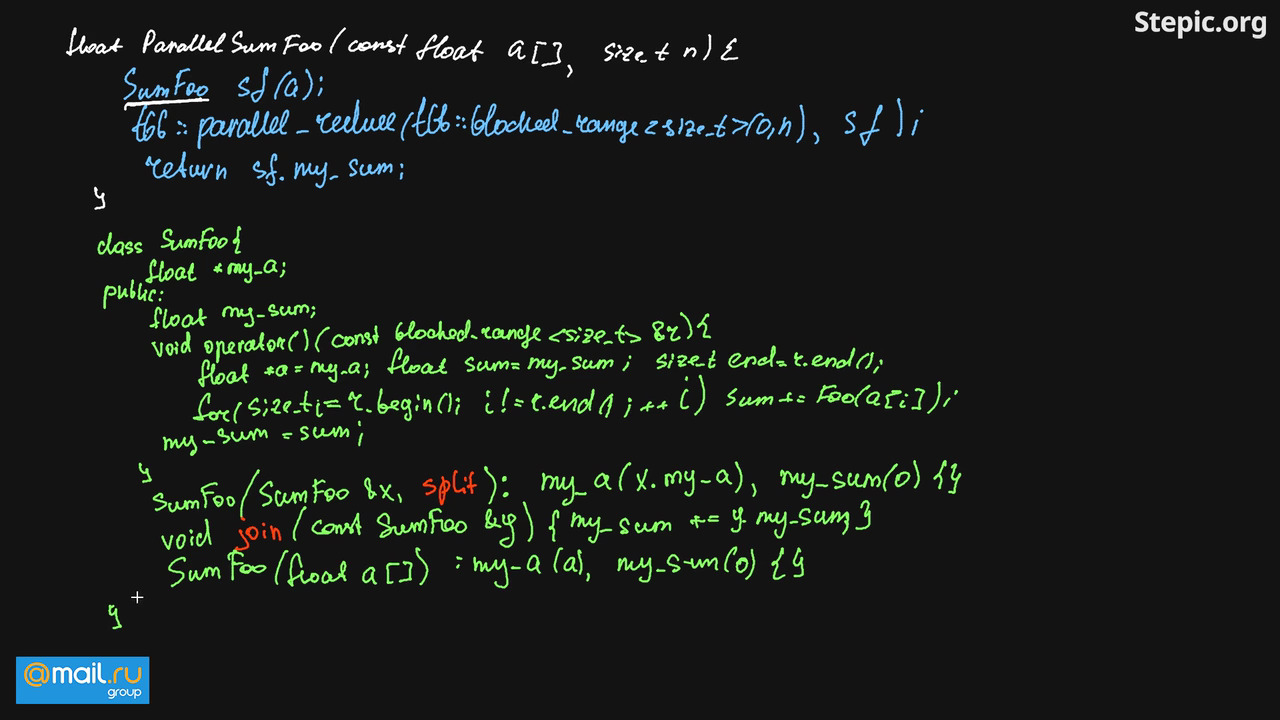 Stepic.org
float ParallelSumFoo(const float a[], size_t n){
SumFoo sf(a);
tbb::parallel_reduce(tbb::blocked_range<size_t>(0,n), sf);
return sf.my_sum;
}
class SumFoo{
float *my_a;
public:
float my_sum;
void operator()(const blocked_range<size_t> &r){
float *a=my_a; float sum=my_sum; size_t end=r.end();
for(size_t i=r.begin(); i!=r.end(); ++i) sum+=Foo(a[i]);
my_sum=sum;
}
SumFoo(SumFoo &x, split): my_a(x.my_a), my_sum(0) {}
void join(const SumFoo &y) {my_sum += y.my_sum;}
SumFoo(float a[]) : my_a(a), my_sum(0) {}
}
@mail.ru
group